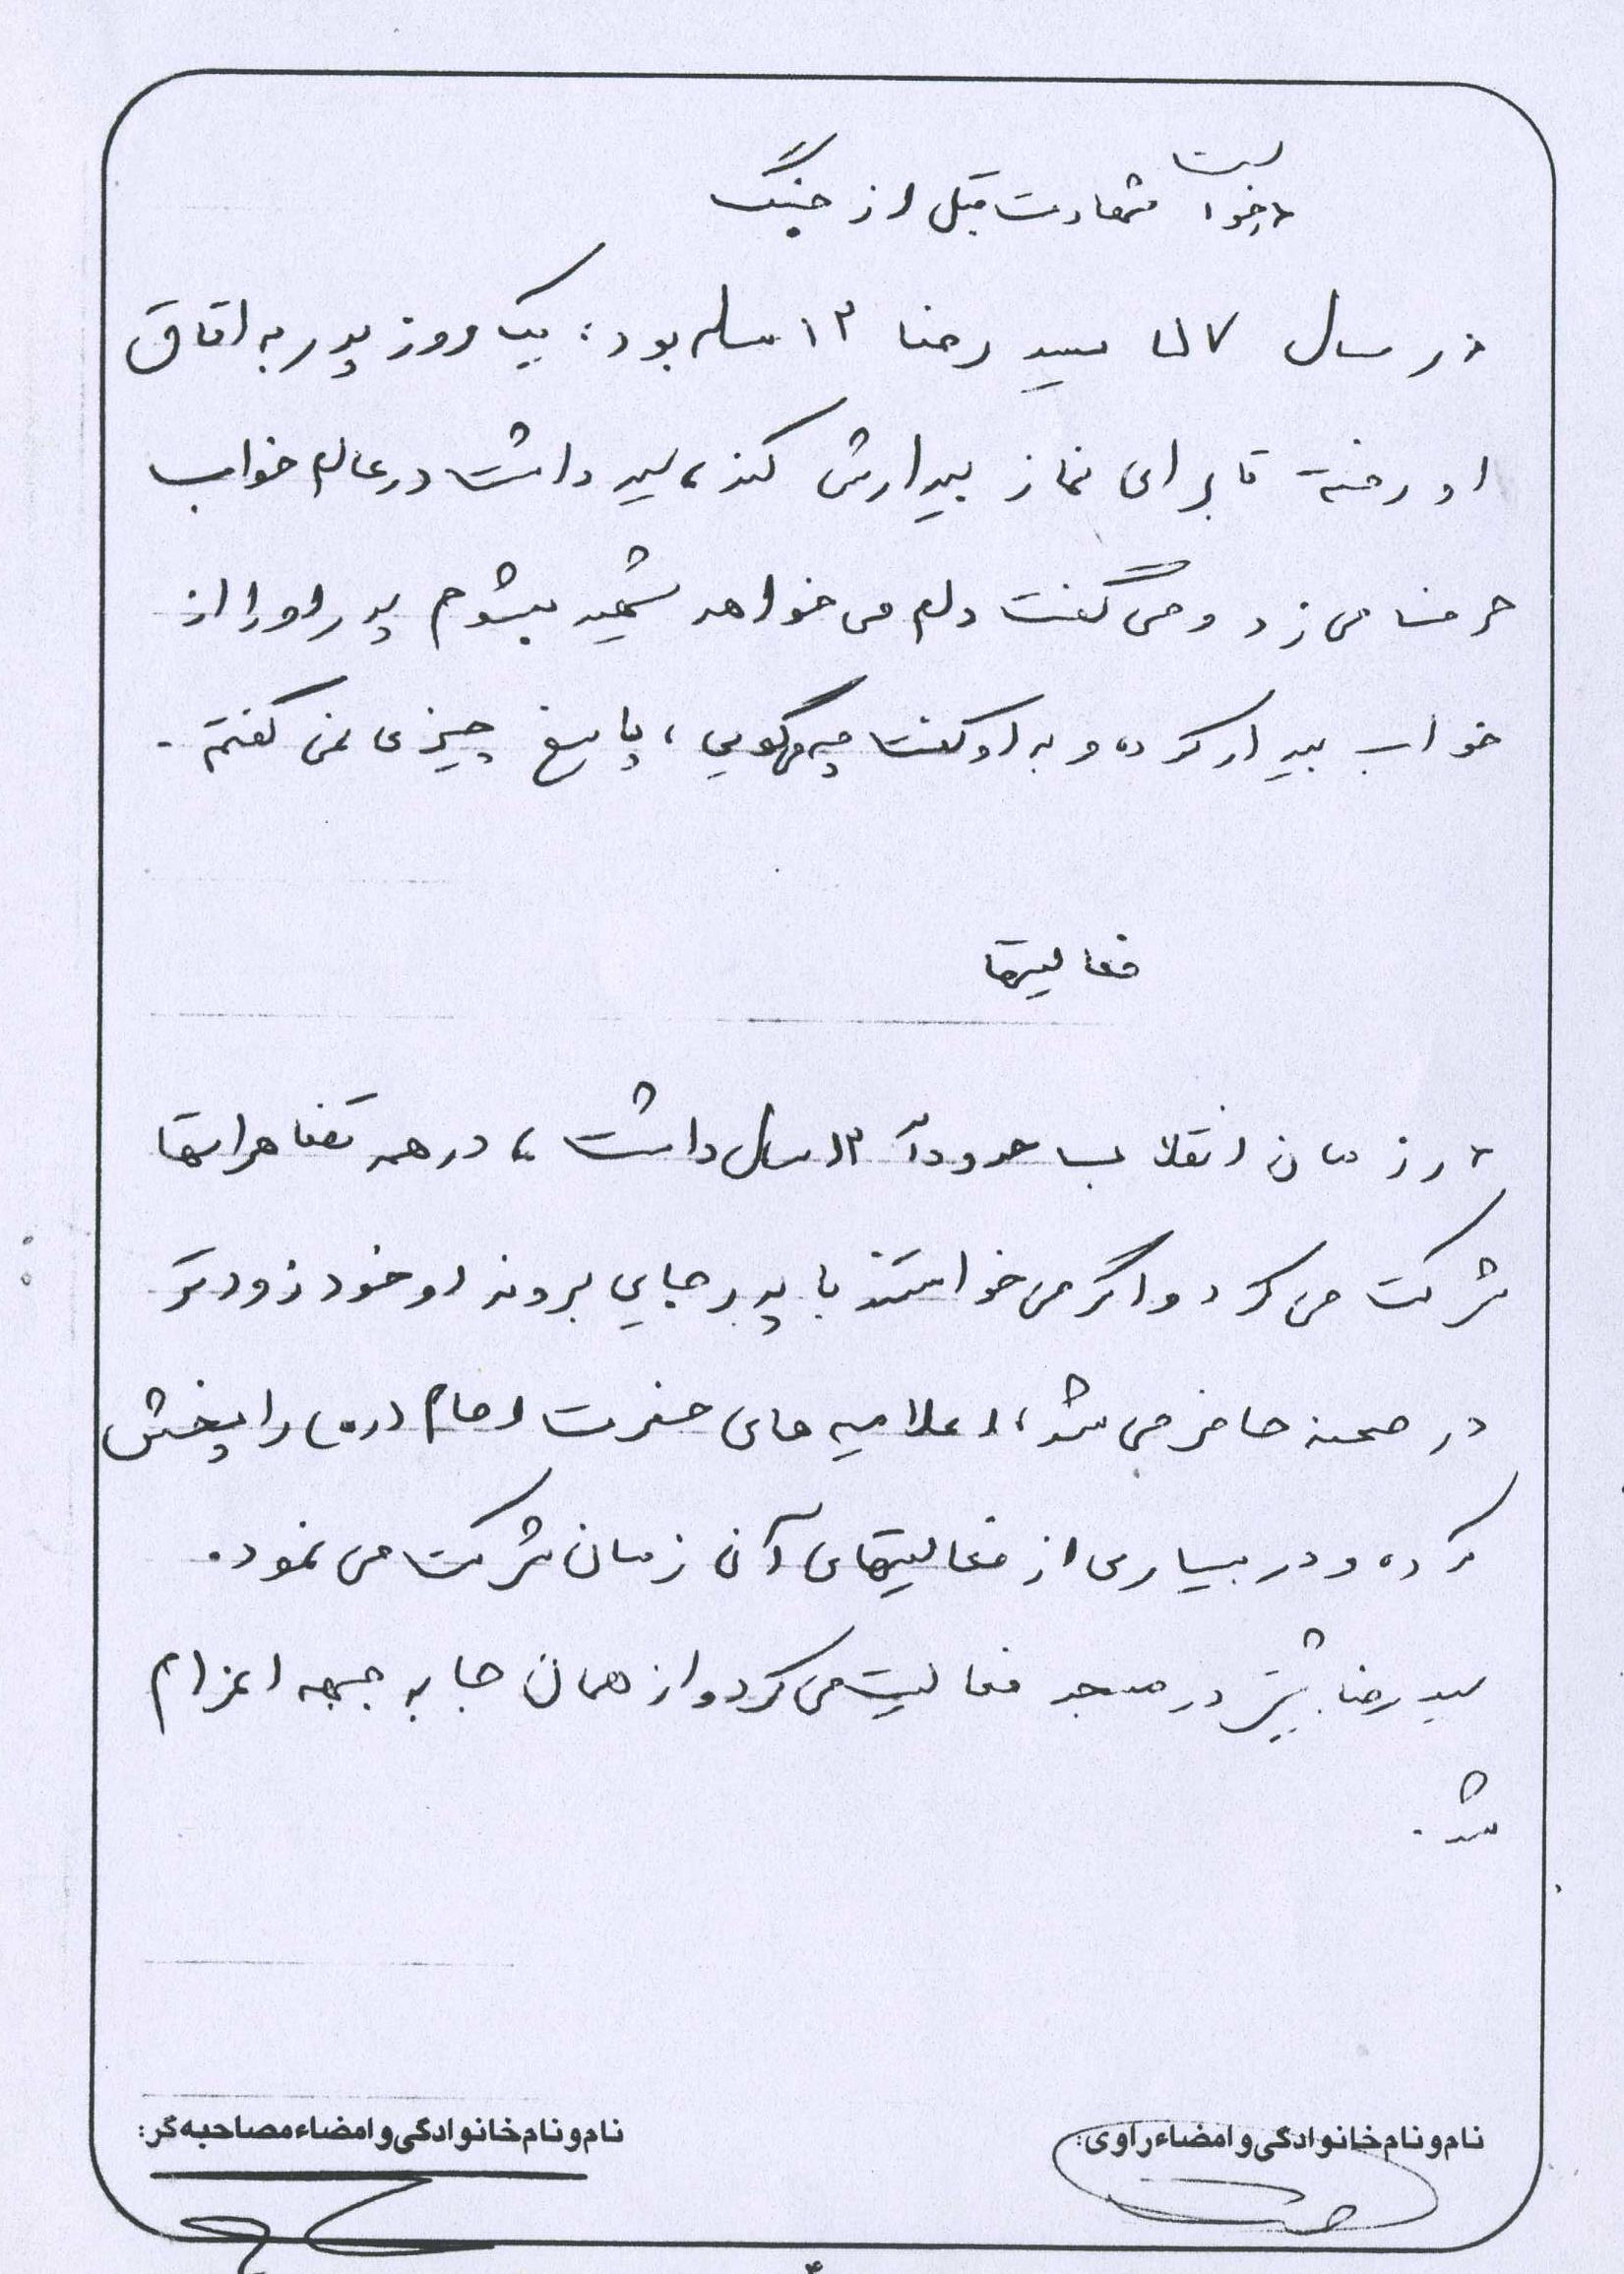 درخواست شهادت قبل از جنگ
در سال ۵۷ سید رضا ۱۳ ساله بود؛ یک روز پدر به اتاق
او رفته تا برای نماز بیدارش کند، سید داشت در عالم خواب
حرف می زد و می گفت دلم می خواهد شهید بشوم پدر او را از
خواب بیدار کرده و به او گفت چه می گویی، پاسخ چیزی نمی گفتم.
فعالیتها
در زمان انقلاب حدوداً ۱۳ سال داشت، در همه تظاهراتها
شرکت می کرد و اگر می خواستند با پدر جایی بروند او خود زودتر
در صحنه حاضر می شد، اعلامیه های حضرت امام (ره) را پخش
کرده و در بسیاری از فعالیتهای آن زمان شرکت می نمود.
سید رضا بیشتر در مسجد فعالیت می کرد و از همان جا به جبهه اعزام
شد.
نام و نام خانوادگی و امضاء راوی:
نام و نام خانوادگی و امضاء مصاحبه گر: